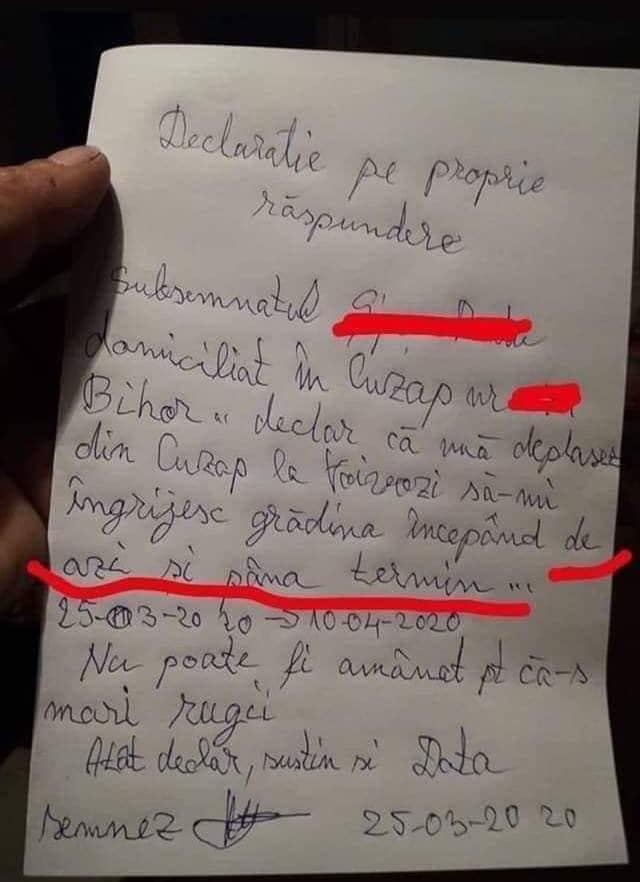 Declaratie pe proprie
răspundere
Subsemnatul
domiciliat în Cuzap nr
Bihor declar că mă deplasez
din Cuzap la Voivozi să-mi
îngrijesc grădina începând de
azi si pâna termin...
25-03-20 20 → 10-04-2020
Nu poate fi amânat pt că-s
mari rugii
Atât declar, sustin si Data
semnez 25-03-20 20